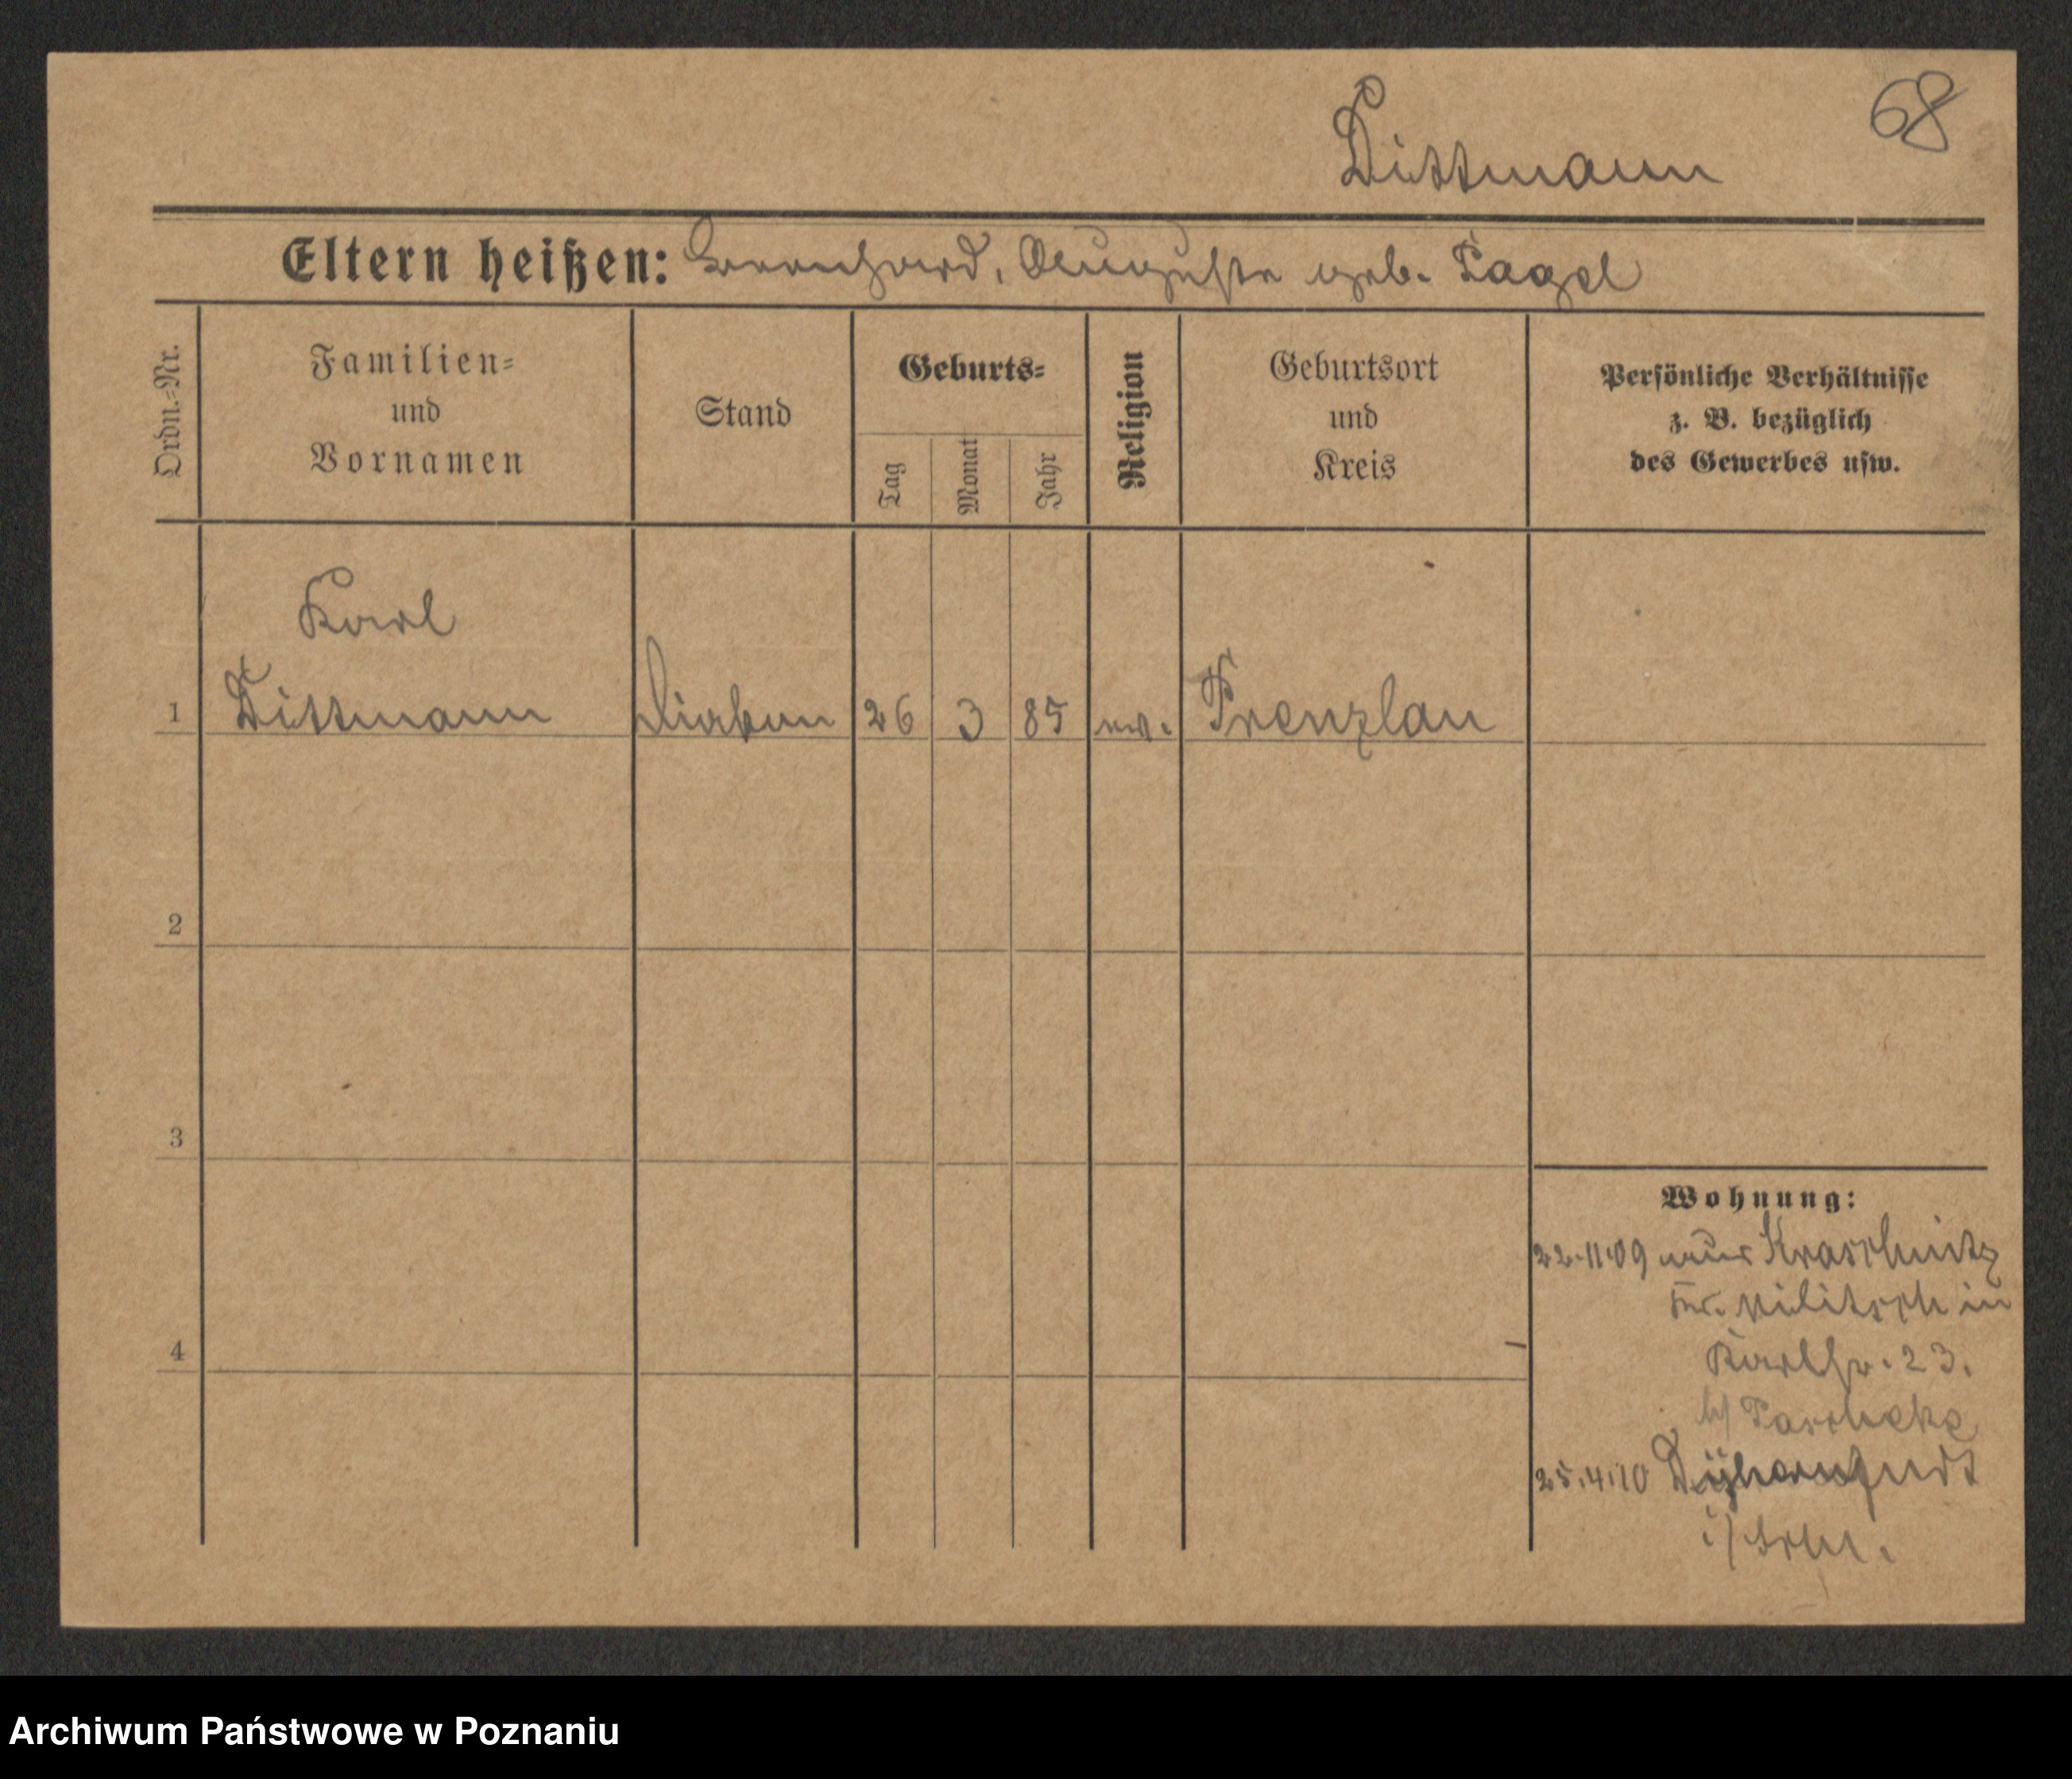 68
Dittmann
Eltern heißen: Bernhard, Auguste geb. Pagel
Ordn.-Nr.
Familien-
und
Vornamen
Stand
Geburts-
Tag
Monat
Jahr
Religion
Geburtsort
und
Kreis
Persönliche Verhältnisse
z. B. bezüglich
des Gewerbes usw.
Karl
1 Dittmann Diakon 26 3 85 ev. Prenzlau
2
3
4
Wohnung:
22.11.09 aus Kraschnitz
Kr. Militsch in
Karlstr. 23.
b/ Pascheke
25.4.10 Dyhernfurt
i/ Schl.
Archiwum Państwowe w Poznaniu